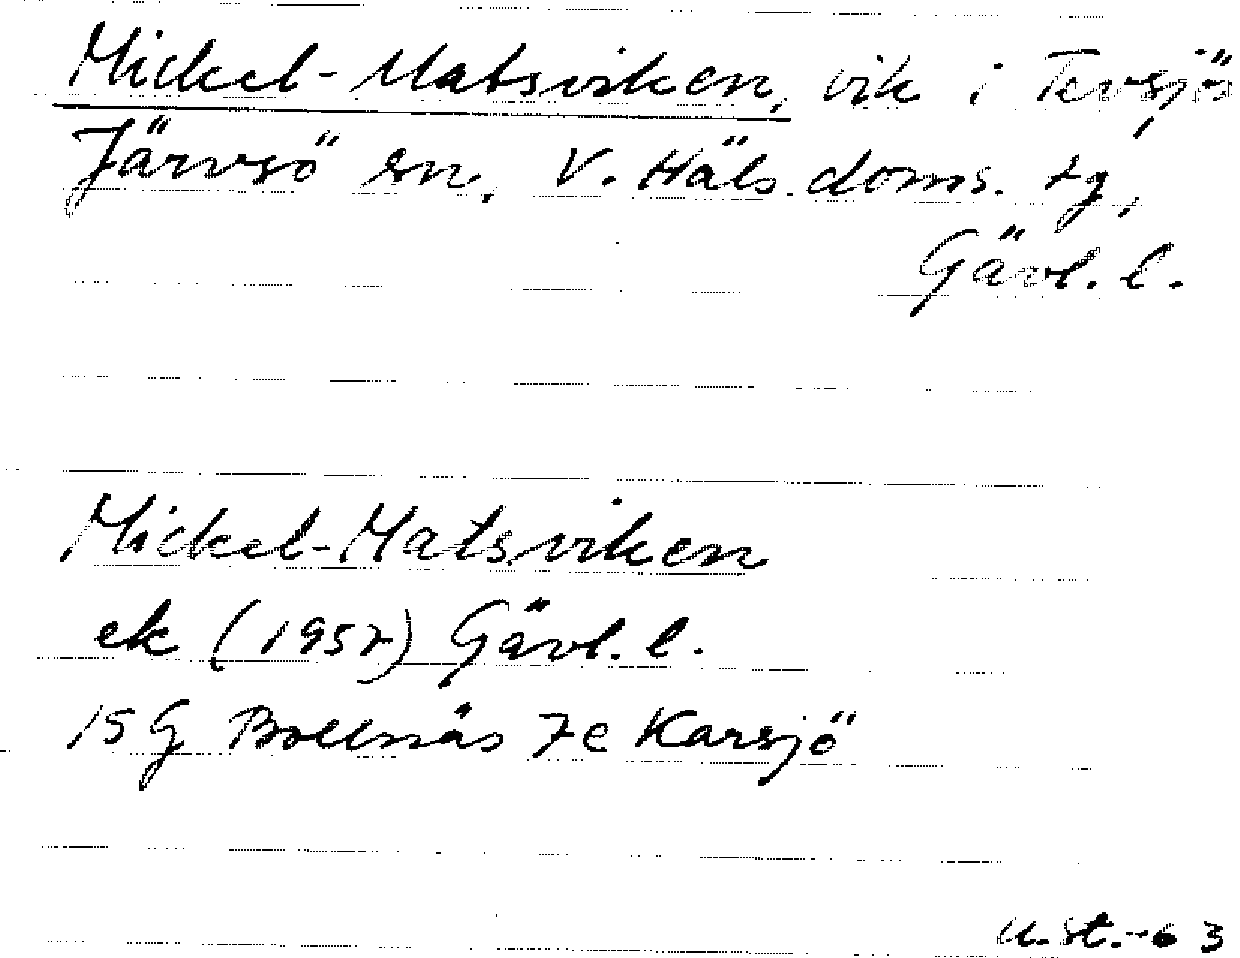 Mickel-Matsviken, vik i Tevsjö
Järvsö sn, V. Häls. doms. tg,
Gävl. l.
Mickel-Matsviken
ek (1957) Gävl. l.
15G Bollnäs 7e Karsjö
U. St. -63